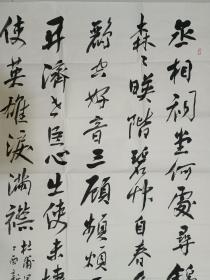 丞相祠堂何處尋錦
森々映階碧艸自春
鸝空好音三顧頻煩
開濟老臣心出使未捷
使英雄淚滿襟
杜甫
丁酉